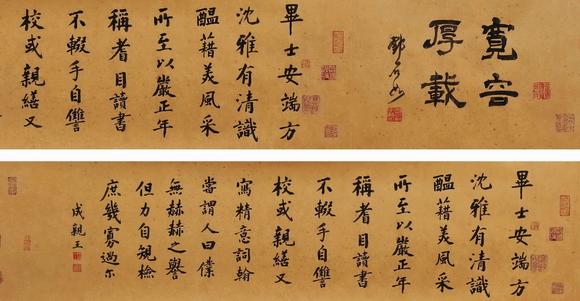 寬容
厚載
鄧石如
畢士安端方
沈雅有清識
醞藉美風采
所至以嚴正年
稱者目讀書
不輟手自讎
校或親繕又
畢士安端方
沈雅有清識
醞藉美風采
所至以嚴正年
稱者目讀書
不輟手自讎
校或親繕又
寫精意詞翰
嘗謂人曰僕
無赫赫之譽
但力自規檢
庶幾寡過尔
成親王